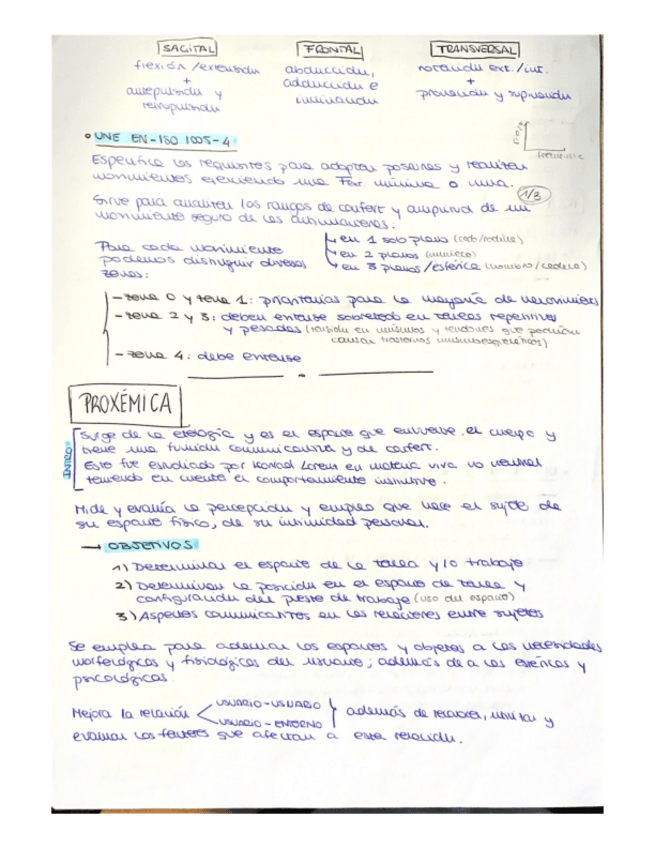 SAGITAL FRONTAL TRANSVERSAL
flexión/extensión abducción, rotación ext./int.
+ aducción e +
antepulsión y inclinación pronación y supinación
retropulsión
• UNE EN-ISO 1005-4
Especifica los requisitos para adoptar posturas y realizar
movimientos ejerciendo una Fext. mínima o nula.
Sirve para analizar los rangos de confort y amplitud de un 1/3
movimiento seguro de las articulaciones.
en 1 solo plano (codo/rodilla)
Para cada movimiento en 2 planos (muñeca)
podemos distinguir diversas en 3 planos/esférica (hombro/cadera)
zonas:
- zona 0 y zona 1: prioritarias para la mayoría de movimientos
- zona 2 y 3: deben evitarse sobretodo en tareas repetitivas
y pesadas (tensión en músculos y tendones que podrían
causar trastornos musculoesqueléticos)
- zona 4: debe evitarse
PROXÉMICA
INTRO
Surge de la etología y es el espacio que envuelve el cuerpo y
tiene una función comunicativa y de confort.
Esto fue estudiado por Konrad Lorenz en materia viva no neutral
teniendo en cuenta el comportamiento instintivo.
Mide y evalúa la percepción y empleo que hace el sujeto de
su espacio físico, de su intimidad personal.
→ OBJETIVOS
1) Determinar el espacio de la tarea y/o trabajo
2) Determinar la posición en el espacio de tarea y
configuración del puesto de trabajo (uso del espacio)
3) Aspectos comunicantes en las relaciones entre sujetos
Se emplea para adecuar los espacios y objetos a las necesidades
morfológicas y fisiológicas del usuario; además de a las estéticas y
psicológicas.
USUARIO-USUARIO
Mejora la relación además de relacionar, limitar y
USUARIO-ENTORNO
evaluar los factores que afectan a esta relación.